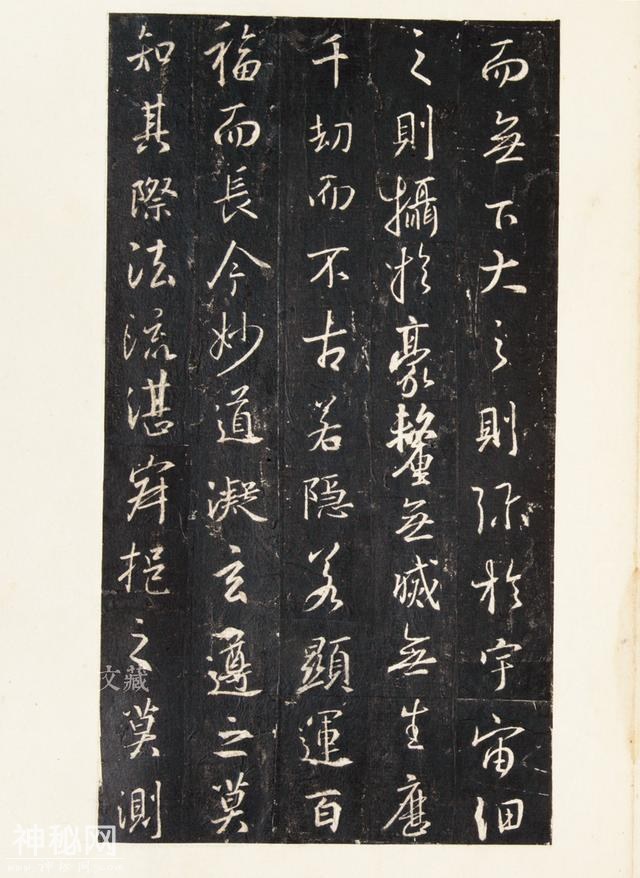 而無下大之則彌於宇宙細
之則攝於豪釐無滅無生歷
千劫而不古若隱若顯運百
福而長今妙道凝玄遵之莫
知其際法流湛寂挹之莫測
藏文
神秘网